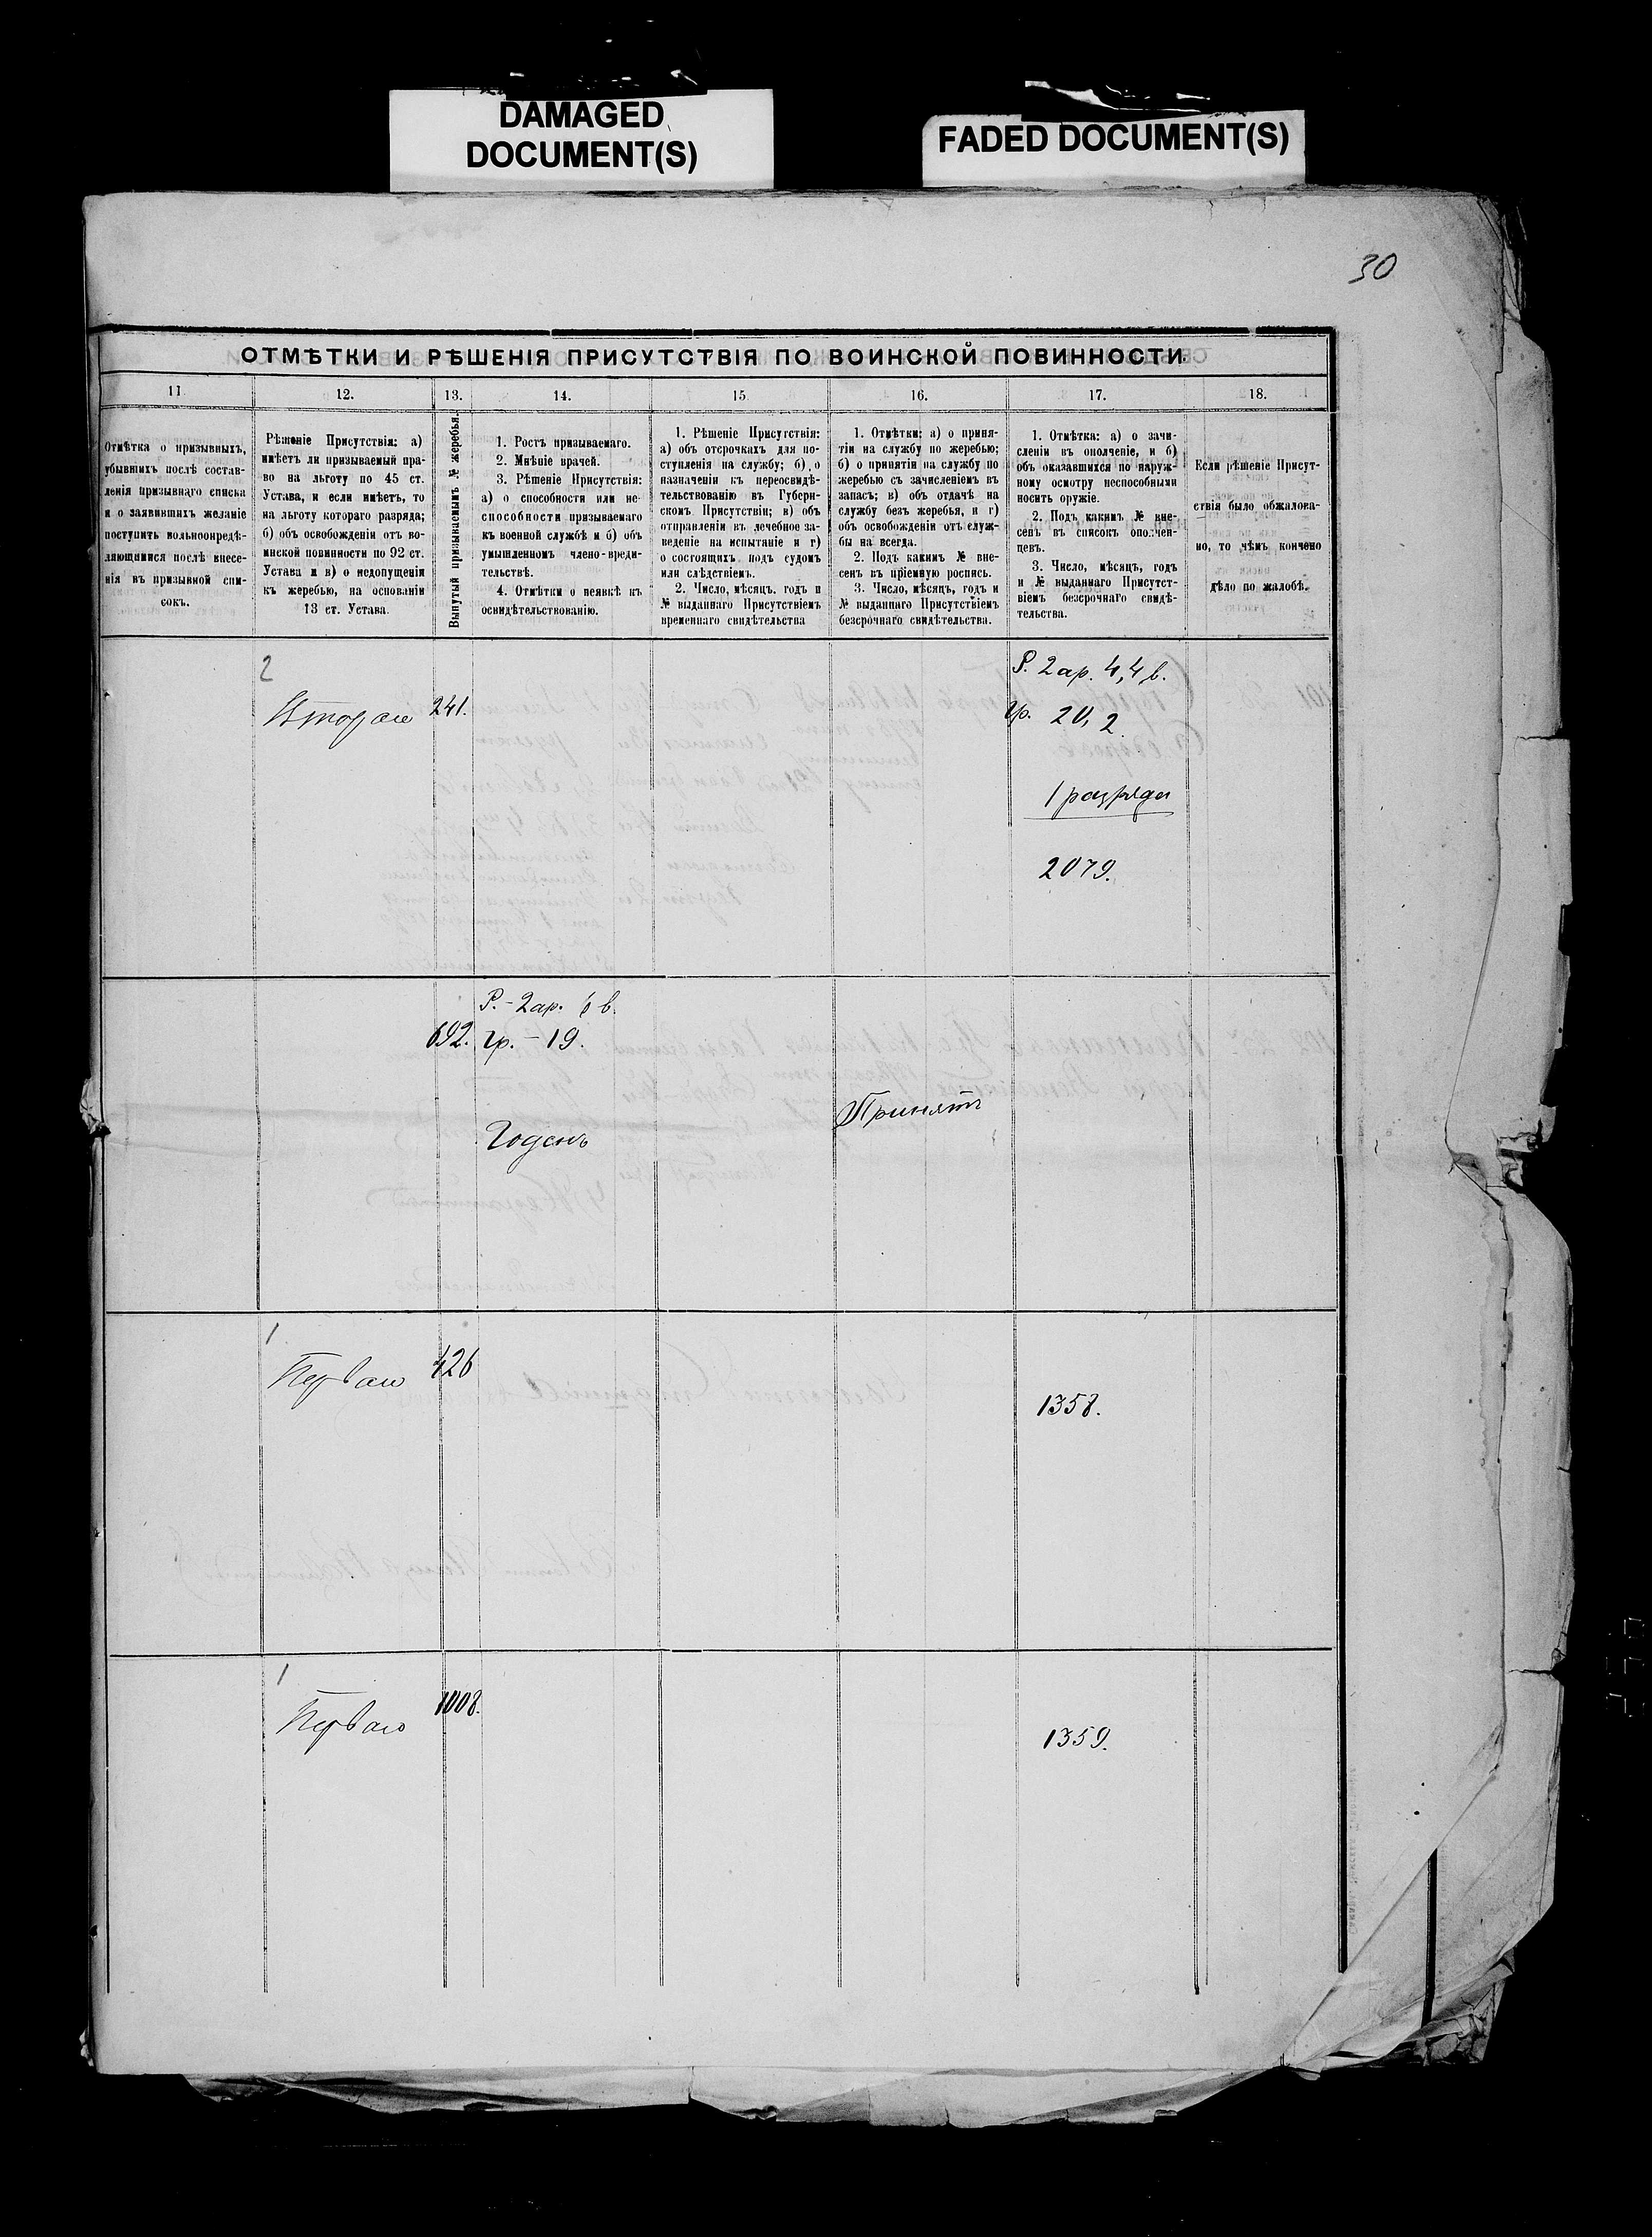 DAMAGED
DOCUMENT(S)
FADED DOCUMENT(S)
30
ОТМѢТКИ И РѢШЕНІЯ ПРИСУТСТВІЯ ПО ВОИНСКОЙ ПОВИННОСТИ
11. 12. 13. 14. 15 16. 17. 18.
Отмѣтка о призывныхъ,
убывшихъ послѣ состав-
ленія призывнаго списка
и о заявившихъ желаніе
поступить вольноопредѣ-
ляющимися послѣ внесе-
нія въ призывной спи-
сокъ.
Рѣшеніе Присутствія: а)
имѣетъ ли призываемый пра-
во на льготу по 45 ст.
Устава, и если имѣетъ, то
на льготу котораго разряда;
б) объ освобожденіи отъ во-
инской повинности по 92 ст.
Устава и в) о недопущеніи
къ жеребью, на основаніи
13 ст. Устава.
Вынутый призываемымъ № жеребья.
1. Ростъ призываемаго.
2. Мнѣніе врачей.
3. Рѣшеніе Присутствія:
а) о способности или не-
способности призываемаго
къ военной службѣ и б) объ
умышленномъ члено-вреди-
тельствѣ.
4. Отмѣтки о неявкѣ къ
освидѣтельствованію.
1. Рѣшеніе Присутствія:
а) объ отсрочкахъ для по-
ступленія на службу; б) о
назначеніи къ переосвидѣ-
тельствованію въ Губерн-
скомъ Присутствіи; в) объ
отправленіи въ лечебное за-
веденіе на испытаніе и г)
о состоящихъ подъ судомъ
или слѣдствіемъ.
2. Число, мѣсяцъ, годъ и
№ выданнаго Присутствіемъ
временнаго свидѣтельства
1. Отмѣтки: а) о приня-
тіи на службу по жеребью;
б) о принятіи на службу по
жеребью съ зачисленіемъ въ
запасъ; в) объ отдачѣ на
службу безъ жеребья, и г)
объ освобожденіи отъ служ-
бы на всегда.
2. Подъ какимъ № вне-
сенъ въ пріемную роспись.
3. Число, мѣсяцъ, годъ и
№ выданнаго Присутствіемъ
безсрочнаго свидѣтельства.
1. Отмѣтка: а) о зачи-
сленіи въ ополченіе, и б)
объ оказавшихся по наруж-
ному осмотру неспособными
носить оружіе.
2. Подъ какимъ № вне-
сенъ въ списокъ ополчен-
цевъ.
3. Число, мѣсяцъ, годъ
и № выданнаго Присутст-
віемъ безсрочнаго свидѣ-
тельства.
Если рѣшеніе Присут-
ствія было обжалова-
но, то чѣмъ кончено
дѣло по жалобѣ.
2
Втораго 241.
Р. 2 ар. 4,4 в.
гр. 20, 2.
1 разряда
2079.
692.
Р. - 2 ар. 6 в.
гр. - 19.
Годенъ
Принятъ
1
Перваго 426
1358.
1
Перваго 1008.
1359.